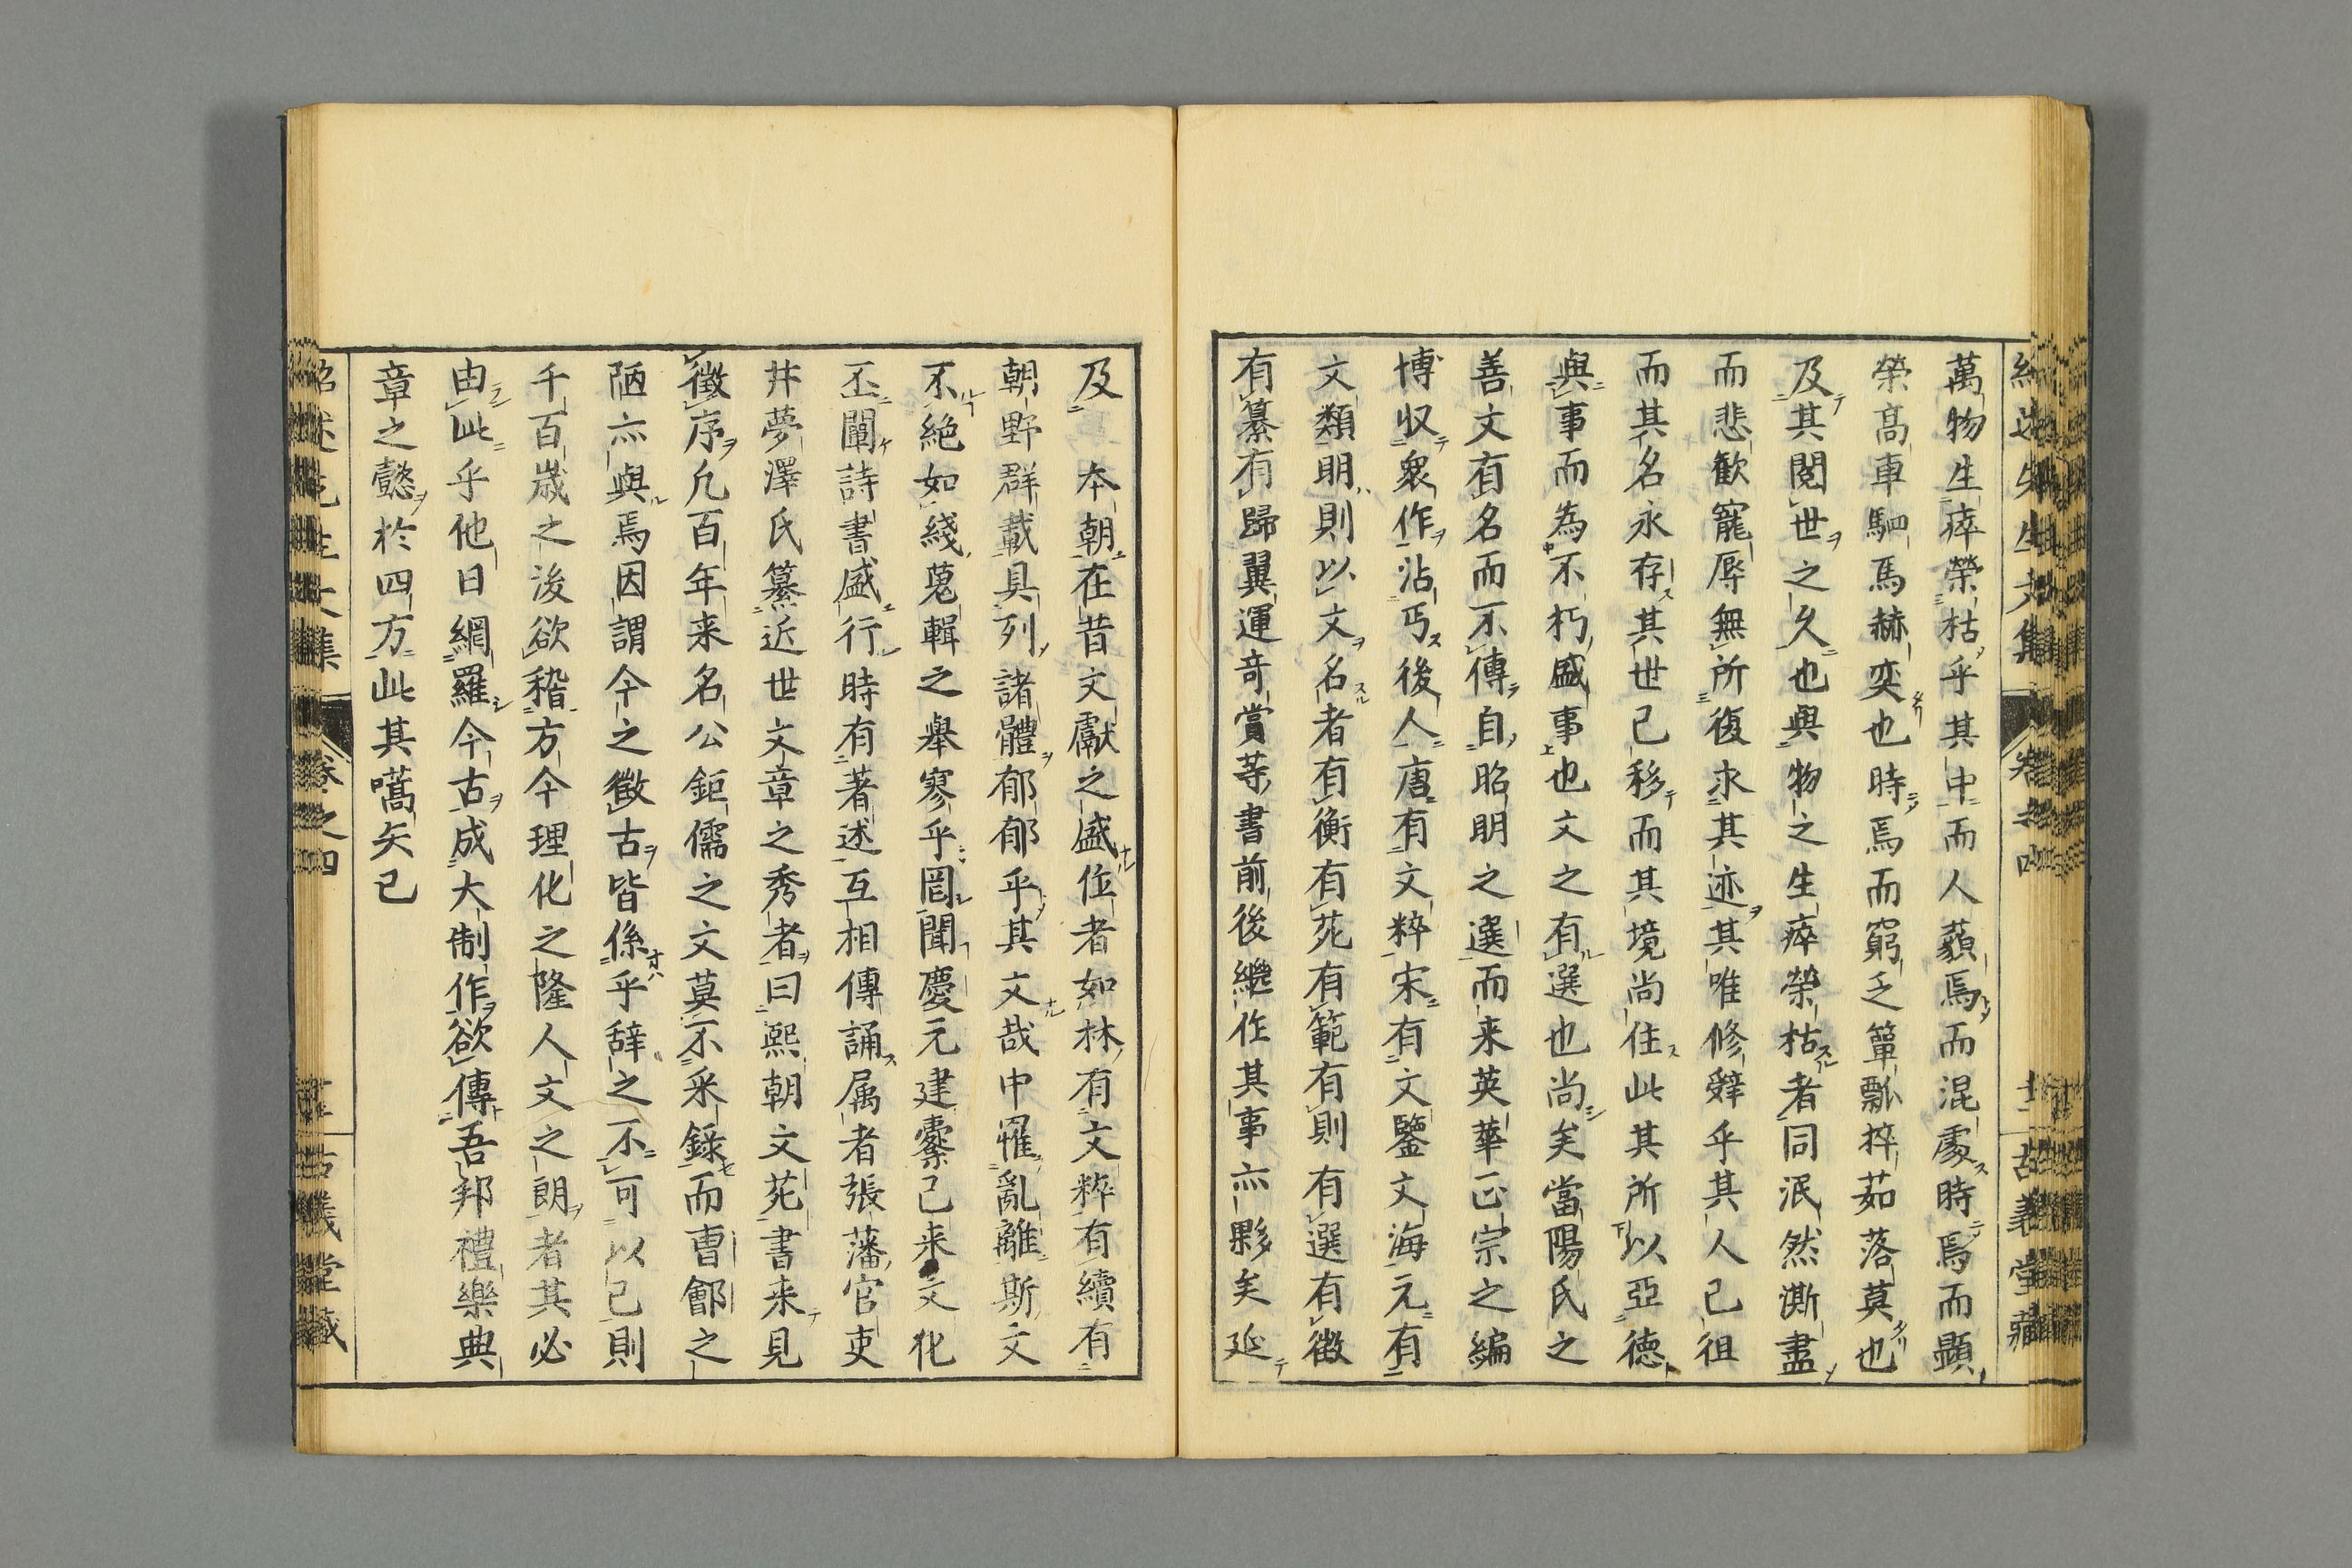 萬物生瘁榮枯乎其中而人藐焉而混處時焉而顯
榮高車駟馬赫奕也時焉而窮乏簞瓢捽茹落莫也
及其閱世之久也與物之生瘁榮枯者同泯然澌盡
而悲歡寵辱無所復求其迹其唯修辭乎其人已徂
而其名永存其世已移而其境尚住此其所以亞德
與事而為不朽盛事也文之有選也尚矣當陽氏之
善文有名而不傳自昭明之選而来英華正宗之編
博収衆作沾丐後人唐有文粹宋有文鑒文海元有
文類明則以文名者有衡有苑有範有則有選有徵
有纂有歸翼運奇賞等書前後繼作其事亦夥矣延
及　本朝在昔文獻之盛位者如林有文粹有續有
朝野群載具列諸體郁郁乎其文哉中罹亂離斯文
不絕如綫蒐輯之舉寥乎罔聞慶元建櫜已来文化
丕闡詩書盛行時有著述互相傳誦属者張藩官吏
井夢澤氏纂近世文章之秀者曰熙朝文苑書来見
徵序凢百年来名公鉅儒之文莫不采錄而曹鄶之
陋亦與焉因謂今之徵古皆係乎辭之不可以已則
千百歲之後欲稽方今理化之隆人文之朗者其必
由此乎他日網羅今古成大制作欲傳吾邦禮樂典
章之懿於四方此其嚆矢已
紹述先生文集
卷之四
古義堂藏